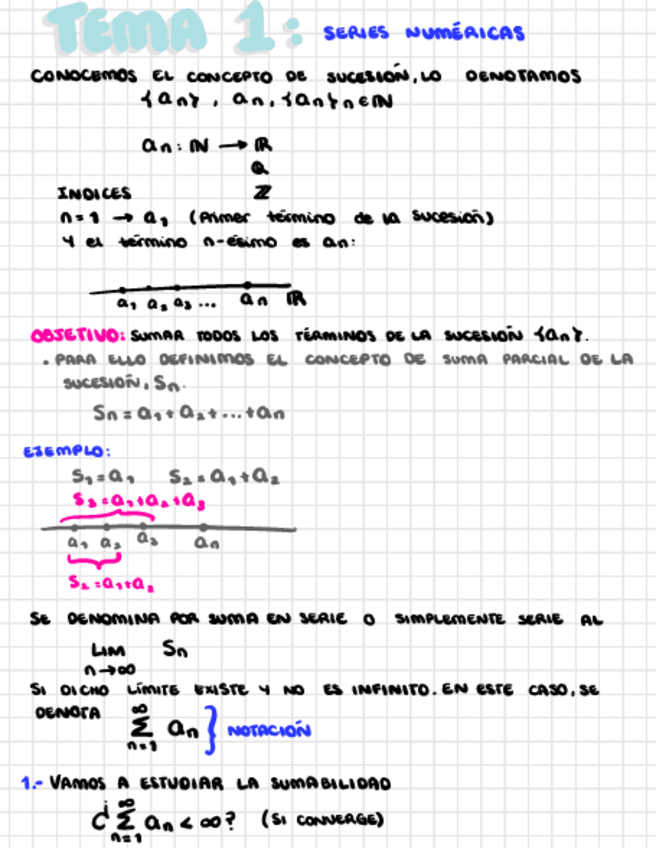 TEMA 1: SERIES NUMÉRICAS
CONOCEMOS EL CONCEPTO DE SUCESIÓN, LO DENOTAMOS
{an}, an, {an}n∈ℕ
an: ℕ → ℝ
ℚ
ℤ
INDICES
n=1 → a₁ (Primer término de la sucesión)
Y el término n-ésimo es an:
a₁ a₂ a₃ ... an ℝ
OBJETIVO: SUMAR TODOS LOS TÉRMINOS DE LA SUCESIÓN {an}.
. PARA ELLO DEFINIMOS EL CONCEPTO DE SUMA PARCIAL DE LA
SUCESIÓN, Sn.
Sn = a₁ + a₂ + ... + an
EJEMPLO:
S₁ = a₁ S₂ = a₁ + a₂
S₃ = a₁ + a₂ + a₃
a₁ a₂ a₃ an
S₂ = a₁ + a₂
SE DENOMINA POR SUMA EN SERIE O SIMPLEMENTE SERIE AL
LIM Sn
n→∞
SI DICHO LÍMITE EXISTE Y NO ES INFINITO. EN ESTE CASO, SE
DENOTA ∞ Σ n=1 an } NOTACIÓN
1.- VAMOS A ESTUDIAR LA SUMABILIDAD
¿ ∞ Σ n=1 an < ∞? (SI CONVERGE)